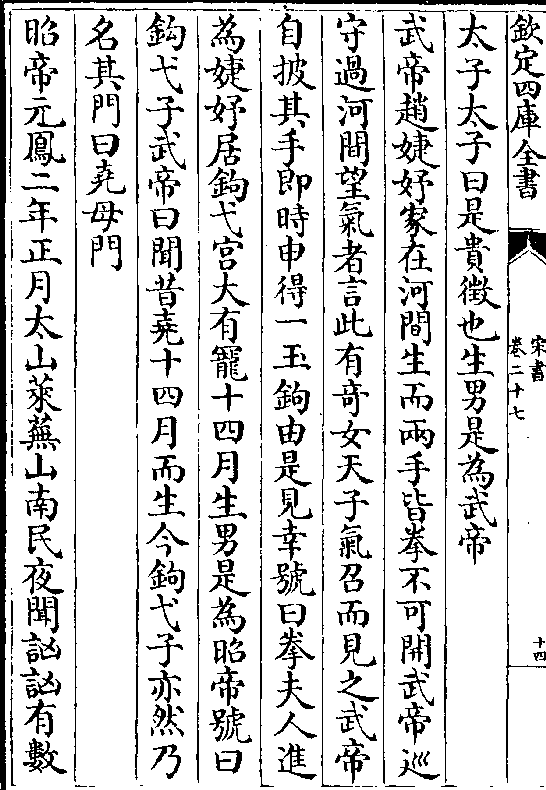 欽定四庫全書
宋書
卷二十七
十四
太子太子曰是貴徵也生男是為武帝
武帝趙婕妤家在河間生而兩手皆拳不可開武帝巡
守過河間望氣者言此有奇女天子氣召而見之武帝
自披其手即時申得一玉鉤由是見幸號曰拳夫人進
為婕妤居鉤弋宮大有寵十四月生男是為昭帝號曰
鉤弋子武帝曰聞昔堯十四月而生今鉤弋子亦然乃
名其門曰堯母門
昭帝元鳳二年正月太山萊蕪山南民夜聞訩訩有數